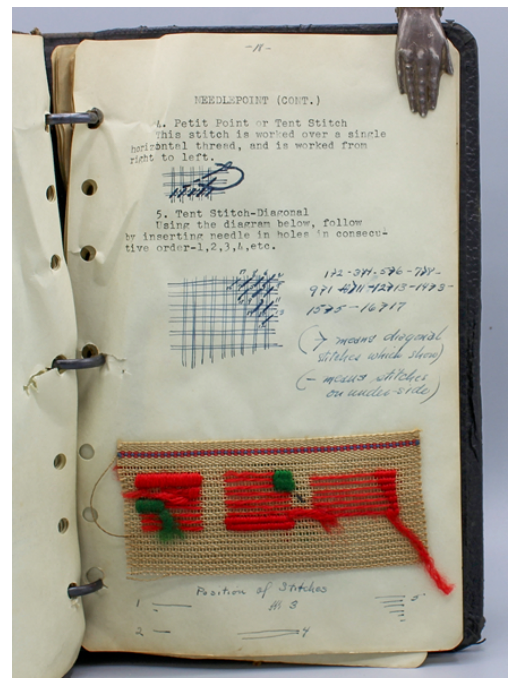 -18-
NEEDLEPOINT (CONT.)
4. Petit Point or Tent Stitch
This stitch is worked over a single
horizontal thread, and is worked from
right to left.
5. Tent Stitch-Diagonal
Using the diagram below, follow
by inserting needle in holes in consecu-
tive order-1,2,3,4,etc.
(→ means diagonal
stitches which show)
(- means stitches
on under-side)
Position of Stitches
1
3
5
2
4